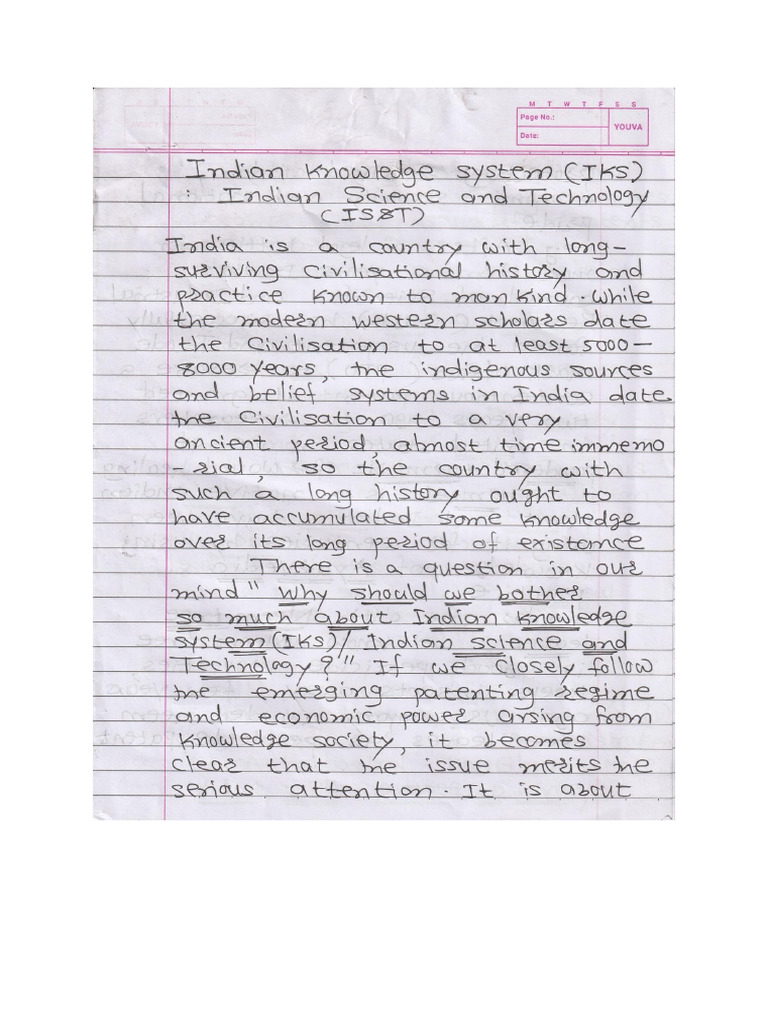 M T W T F S S
Page No.:
YOUVA
Date:
Indian Knowledge system (IKS)
: Indian Science and Technology
(IS&T)
India is a country with long-
surviving Civilisational history and
practice known to man kind. while
the modern western scholars date
the Civilisation to at least 5000-
8000 years, the indigenous sources
and belief systems in India date
the Civilisation to a very
ancient period, almost time immemo
-rial, so the country with
such a long history ought to
have accumulated some knowledge
over its long period of existance
There is a question in our
mind "Why should we bother
so much about Indian knowledge
system (IKS)/ Indian science and
Technology?" If we closely follow
the emerging patenting regime
and economic power arsing from
knowledge society, it becomes
clear that the issue merits the
serious attention. It is about